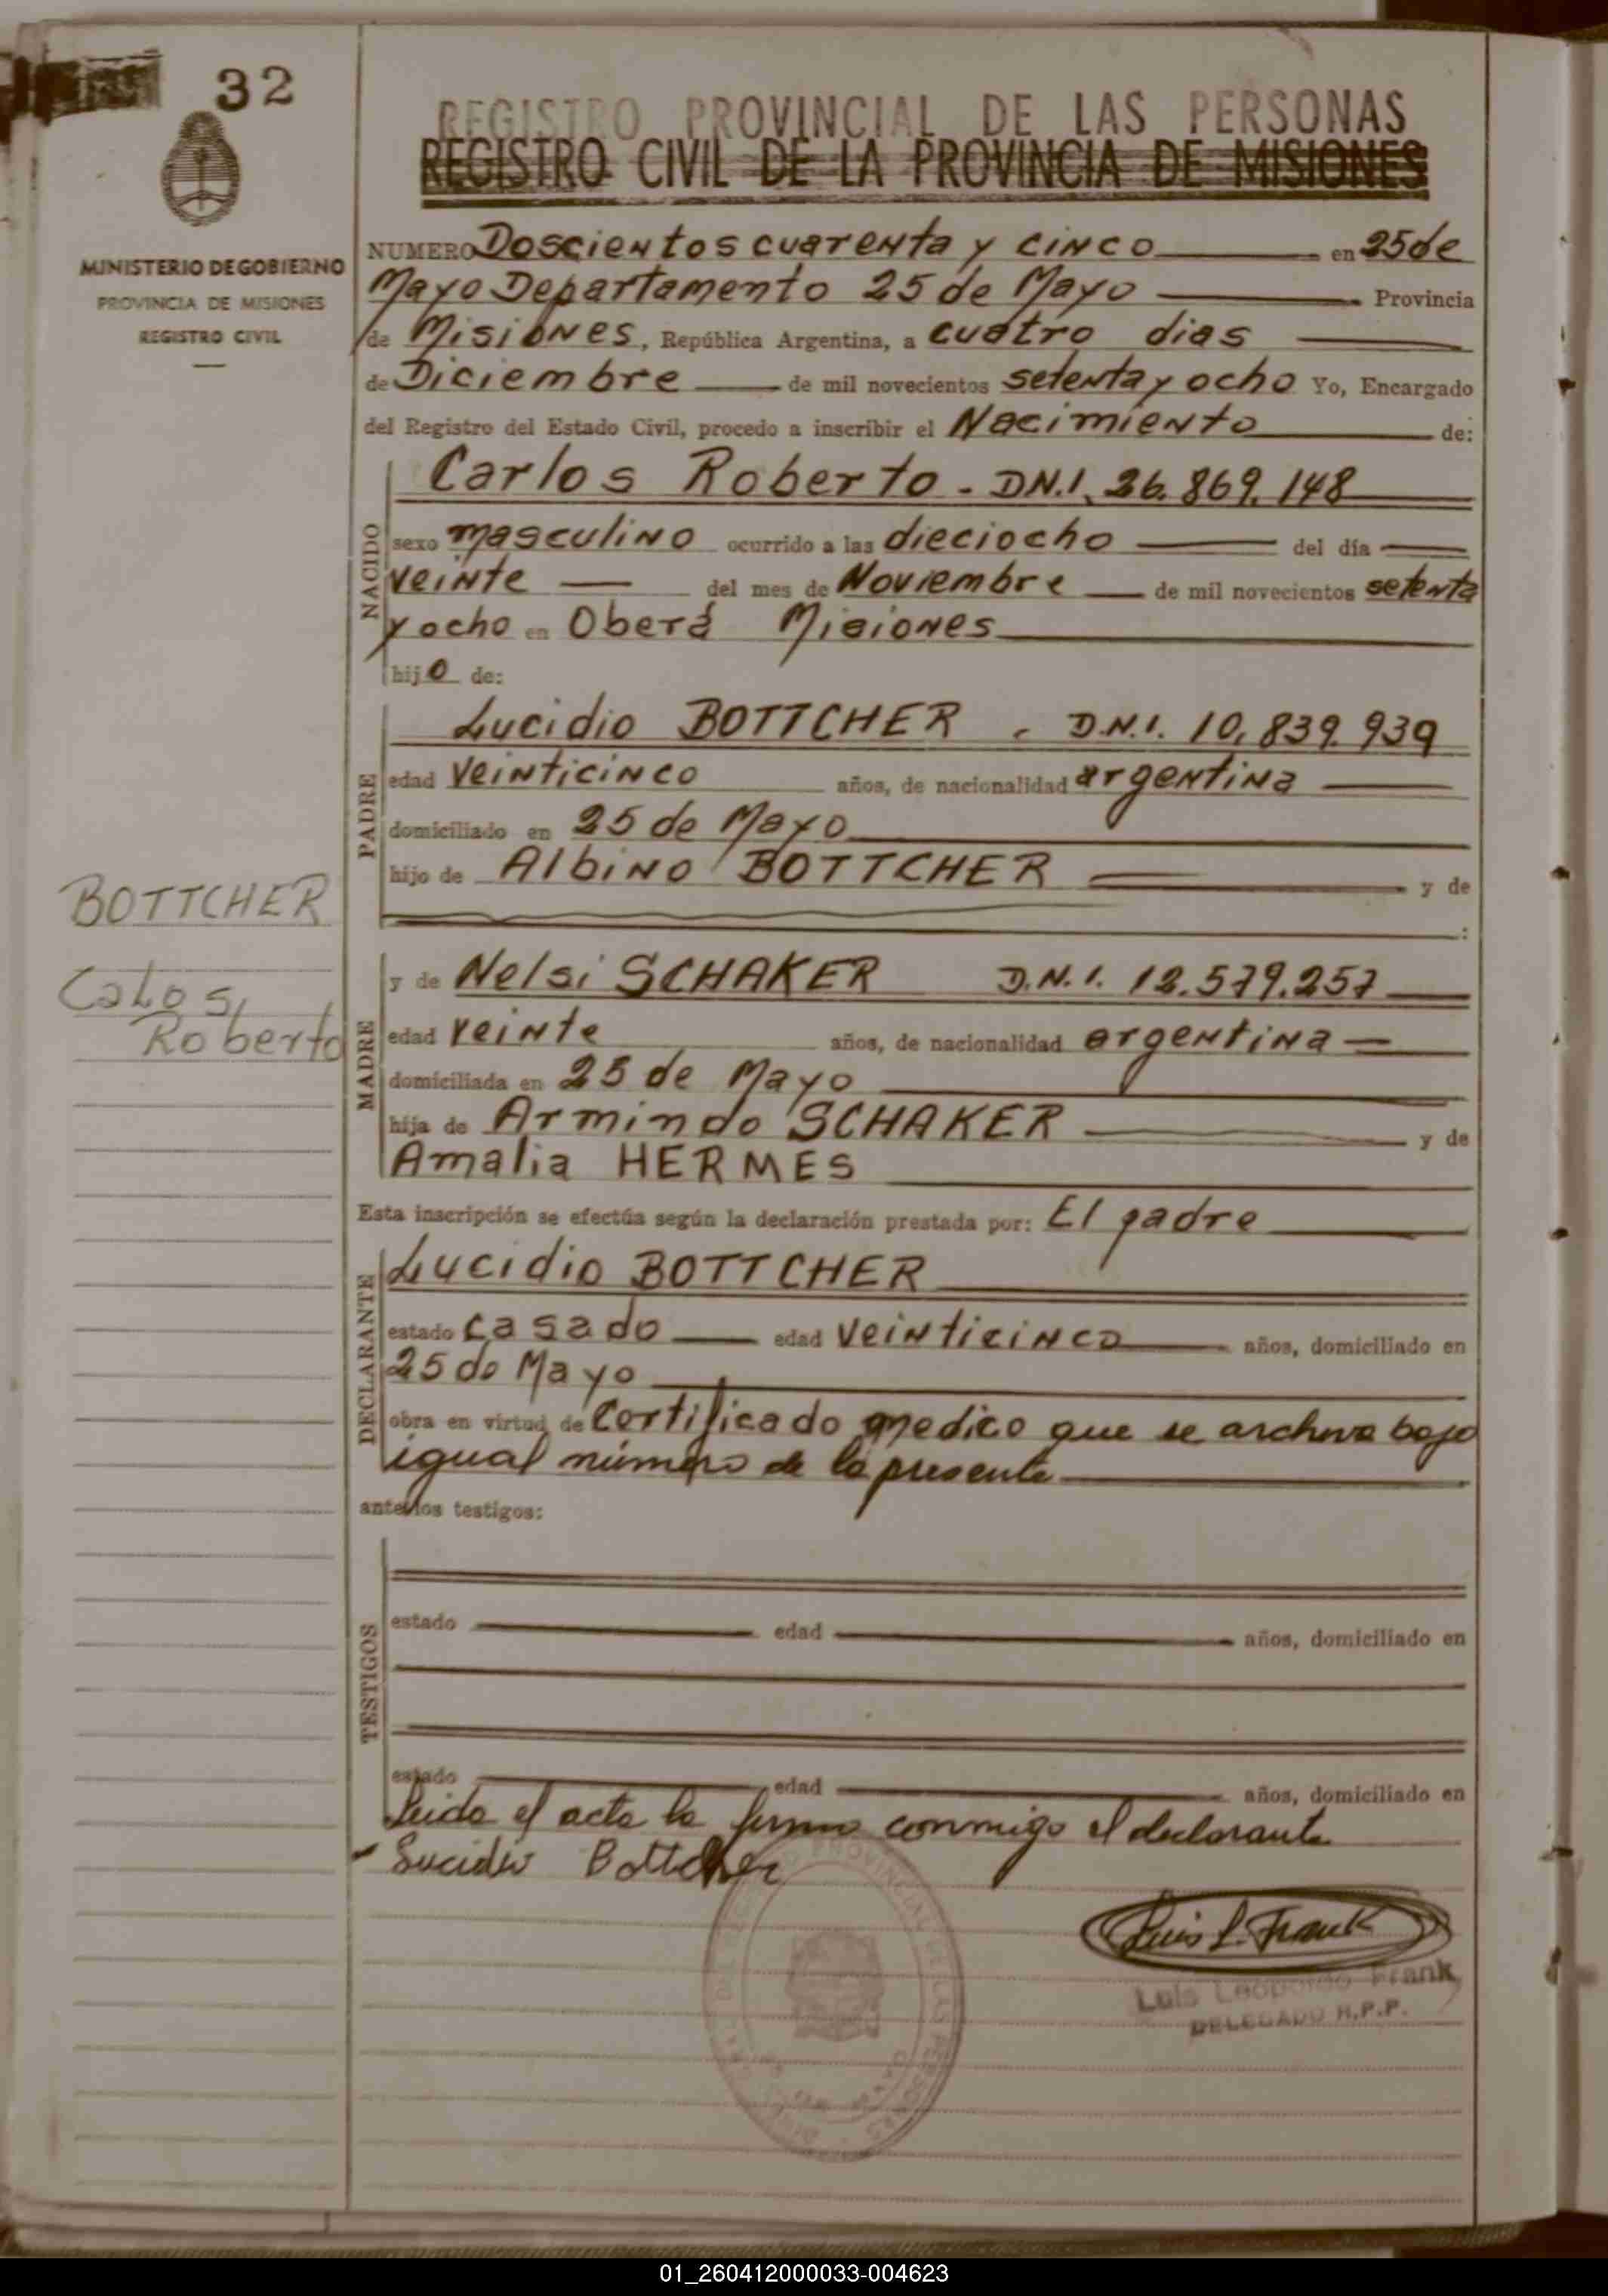 32
MINISTERIO DE GOBIERNO
PROVINCIA DE MISIONES
REGISTRO CIVIL
REGISTRO PROVINCIAL DE LAS PERSONAS
REGISTRO CIVIL DE LA PROVINCIA DE MISIONES
NUMERO Doscientos cuarenta y cinco en 25 de
Mayo Departamento 25 de Mayo Provincia
de Misiones, República Argentina, a cuatro dias
de Diciembre de mil novecientos setenta y ocho Yo, Encargado
del Registro del Estado Civil, procedo a inscribir el Nacimiento de:
NACIDO
Carlos Roberto - D.N.I. 26.869.148
sexo masculino ocurrido a las dieciocho del día
veinte del mes de Noviembre de mil novecientos setenta
y ocho en Oberá Misiones
hijo de:
PADRE
Lucidio BOTTCHER - D.N.I. 10.839.939
edad veinticinco años, de nacionalidad argentina
domiciliado en 25 de Mayo
hijo de Albino BOTTCHER y de
BOTTCHER
Calos
Roberto
MADRE
y de Nelsi SCHAKER D.N.I. 12.579.257
edad veinte años, de nacionalidad argentina
domiciliada en 25 de Mayo
hija de Armindo SCHAKER y de
Amalia HERMES
Esta inscripción se efectúa según la declaración prestada por: El padre
DECLARANTE
Lucidio BOTTCHER
estado casado edad veinticinco años, domiciliado en
25 de Mayo
obra en virtud de Certificado medico que se archiva bajo
igual número de la presente
ante los testigos:
TESTIGOS
estado edad años, domiciliado en
estado edad años, domiciliado en
Leida el acta la firma conmigo el declarante
Lucidio Bottcher
Luis L. Frank
Luis Leopoldo Frank
DELEGADO R.P.P.
01_260412000033-004623